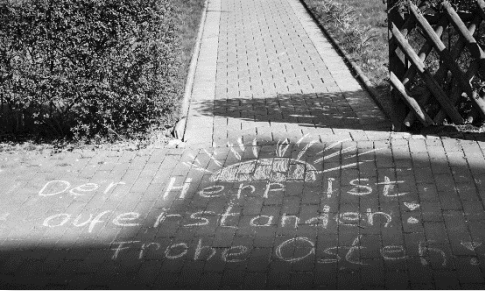 Der Herr ist
auferstanden!
Frohe Ostern!